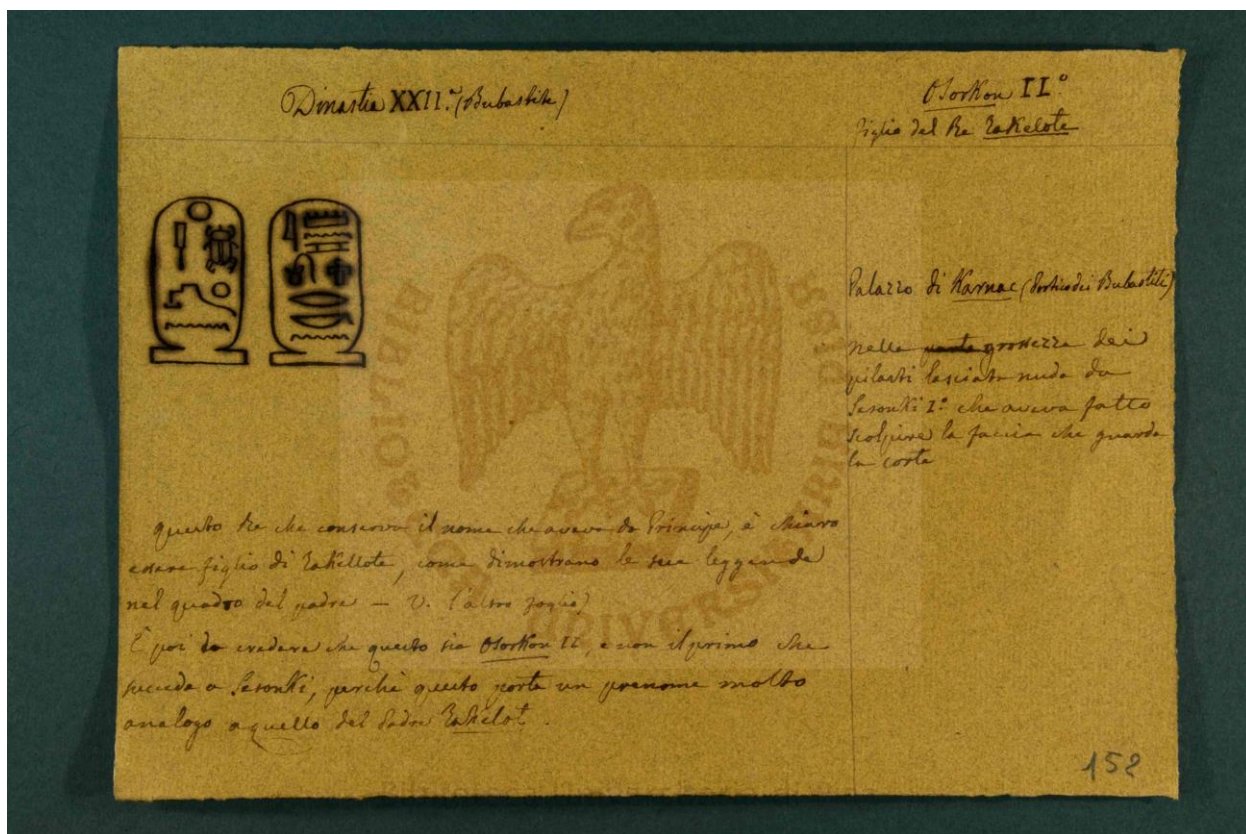 Dinastia XXII.ª (Bubastite)
Osorkon II.°
Figlio del Re Takelote
Palazzo di Karnac (Portico dei Bubastiti)
nella parte grossezza dei
pilastri lasciata nuda da
Sesonki I.° che aveva fatto
scolpire la faccia che guarda
la corte
Questo Re che conserva il nome che aveva da Principe, è chiaro
essere figlio di Takellote, come dimostrano le sue leggende
nel quadro del padre — V. l'altro foglio)
È poi da credere che questo sia Osorkon II, e non il primo che
succede a Sesonki, perchè questo porta un prenome molto
analogo a quello del Padre Takelot.
158